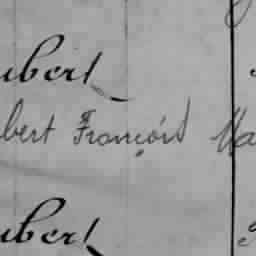 ubert
bert François Ma
ubert